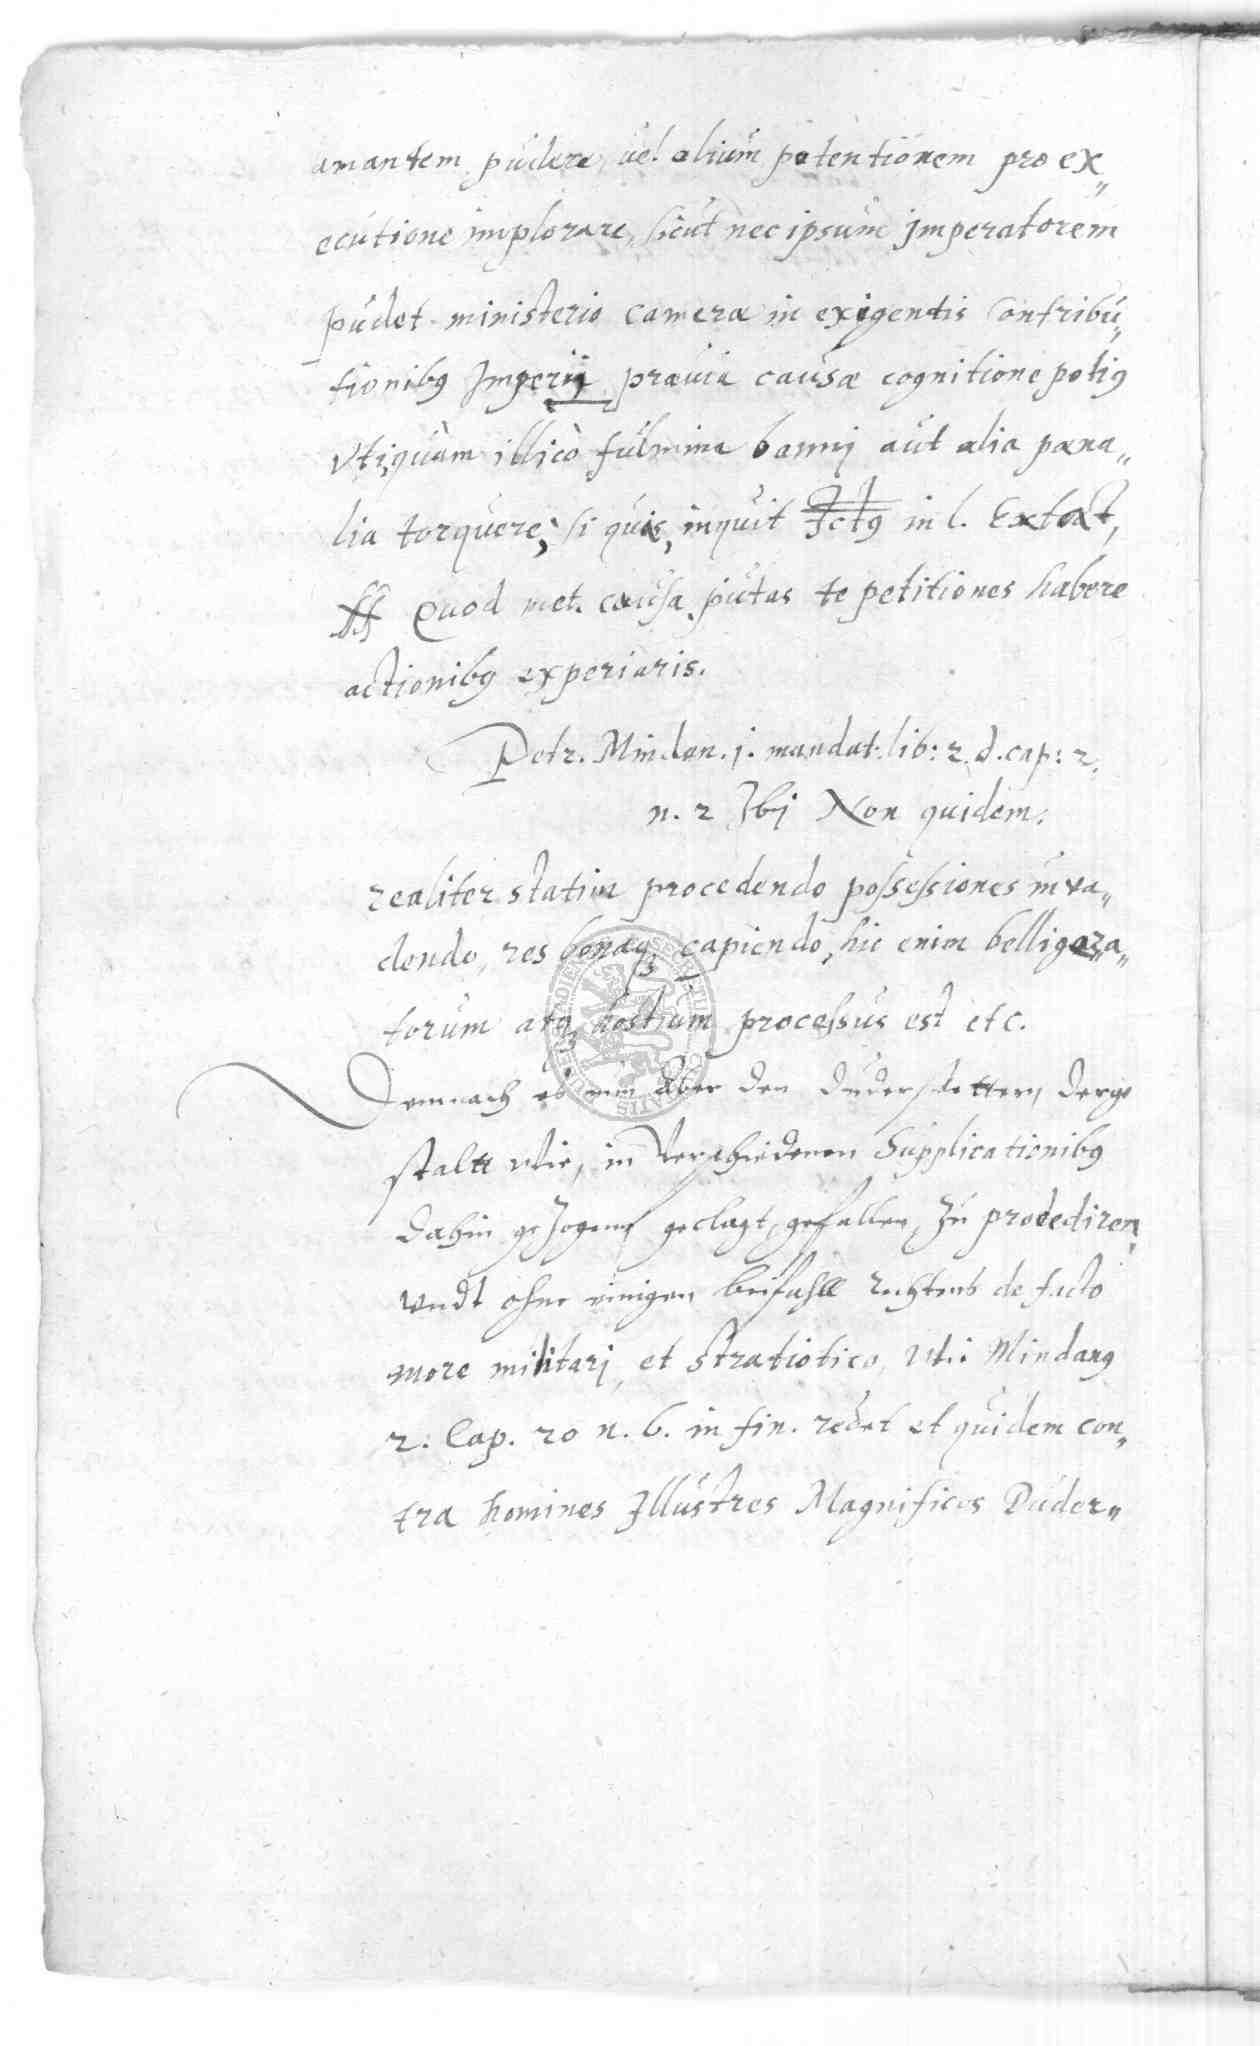 amantem pudere, uel alium potentiorem pro ex„
ecutione implorare, sicut nec ipsum jmperatorem
pudet ministerio Cameræ in exigentis Contribu„
tionibꝯ Jmperij præuia causæ cognitione potiꝯ
vti, quàm illicò fulmina bannj aut alia pæna„
lia torquere, si quis, inquit Jctꝯ in l. Extat,
ff Quod met. causa putas te petitiones habere
actionibꝯ experiaris.
Petr. Minden. j. mandat: lib: 2. d. cap: 2.
n. 2 Jbj Non quidem.
realiter statim procedendo possessiones inva„
dendo, res bonaqꝫ capiendo, hic enim belligera„
torum atqꝫ hostium processus est etc.
Demnach es nun aber den Duderstettern, derge
staltt wie, in verschiedenen Supplicationibꝯ
dahin gezogenn geclagt, gefallen, zu procediren
vndt ohne einigen beifahll rechtens de facto
more militarj, et stratiotico, vti Mindanꝯ
2. Cap. 20 n. 6. in fin. redet et quidem con„
tra homines Jllustres Magnificos Duder„